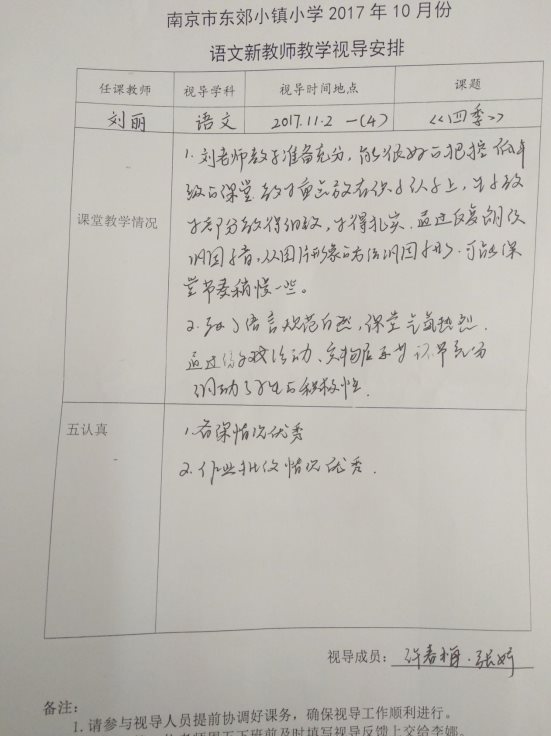 南京市东郊小镇小学 2017 年 10 月份
语文新教师教学视导安排
任课教师 视导学科 视导时间地点 课题
刘丽 语文 2017.11.2 一(4) 《四季》
课堂教学情况
1.刘老师教学准备充分，能很好的把握低年
级的课堂，教学重点放在识字认字上，生字教
学部分教得细致，学得扎实。通过反复朗读
巩固字音，从图片形象的方法巩固字形。可能课
堂节奏稍慢一些。
2.教学语言规范自然，课堂气氛热烈.
通过游戏活动、实物展示等环节充分
调动了学生的积极性.
五认真
1.备课情况优秀
2.作业批改情况优秀.
视导成员：许春梅.张婷
备注：
1.请参与视导人员提前协调好课务，确保视导工作顺利进行。
老师周五下班前及时填写视导反馈上交给李娜。